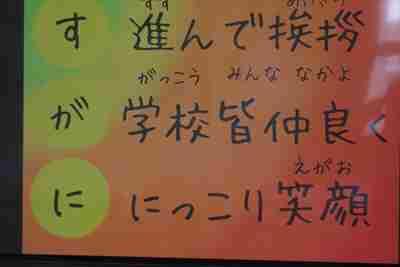 すす あいさつ
す 進んで挨拶
がっこう みんな なかよ
が 学校皆仲良く
えがお
に にっこり笑顔